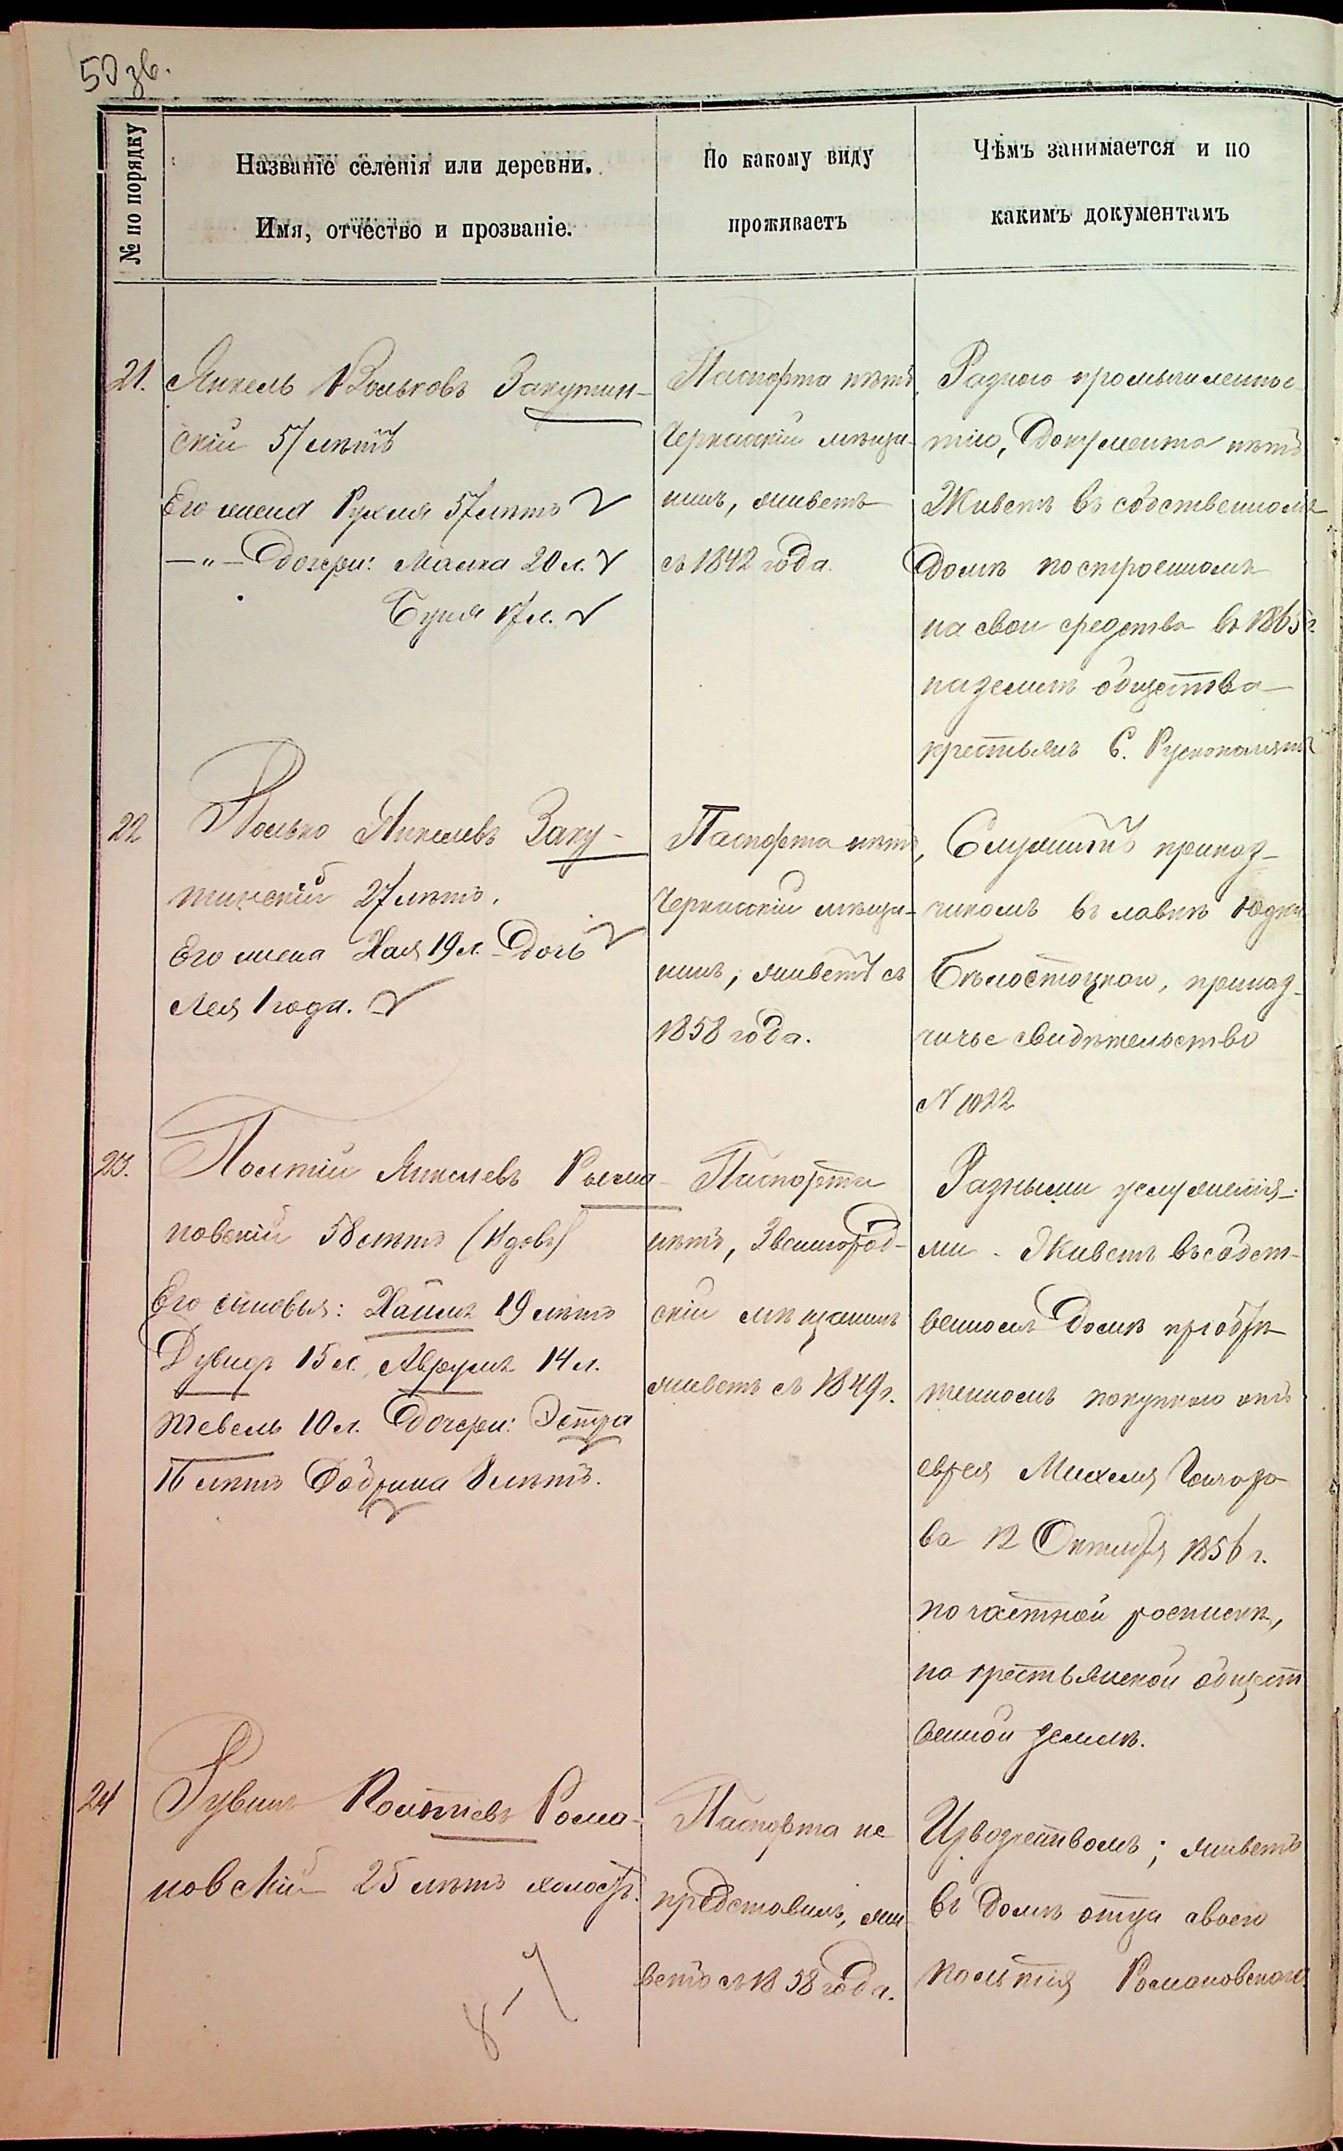 50 зв.
№ по порядку
Названіе селенія или деревни.
Имя, отчество и прозваніе.
По какому виду
проживаетъ
Чѣмъ занимается и по
какимъ документамъ
21.
Янкель Вольковъ Закутин-
скій 57 лѣтъ
Его жена Рухля 57 лѣтъ
—"— Дочери: Малка 20 л.
Буня 17 л.
Паспорта нѣтъ
Черкасскій мѣща-
нинъ, живетъ
съ 1842 года.
Разною промышленнос-
тію, Документа нѣтъ
Живетъ въ собственномъ
Домѣ построенномъ
на свои средства въ 1865 г.
на землѣ общества
крестьянъ С.
22
Волько Янкелевъ Заку-
тинскій 27 лѣтъ.
Его жена Хая 19 л. Дочь
Лея 1 года.
Паспорта нѣтъ,
Черкасскій мѣща-
нинъ, живетъ съ
1858 года.
Служитъ приказ-
чикомъ въ лавкѣ
Бѣлостоцкаго, приказ-
чичье свидѣтельство
№ 1022
23.
Янкелевъ Рома-
новскій 58 лѣтъ (вдовъ)
Его сыновья: Хаимъ 19 лѣтъ
Дувидъ 15 л. Аврумъ 14 л.
Тевель 10 л. Дочери: Эстра
16 лѣтъ Добриша 8 лѣтъ.
Паспорта
нѣтъ, Звенигород-
скій мѣщанинъ
живетъ съ 1849 г.
Разными услуженія-
ми. Живетъ въ собст-
венномъ Домѣ пріобрѣ-
тенномъ покупкою отъ
еврея Михеля
ва 12 Октября 1856 г.
по частной роспискѣ,
на крестьянской общест
венной землѣ.
24
Рувинъ Рома-
новскій 25 лѣтъ холостъ.
Паспорта не
представилъ, жи-
ветъ съ 1858 года.
Извозничествомъ; живетъ
въ Домѣ отца своего
Романовскаго